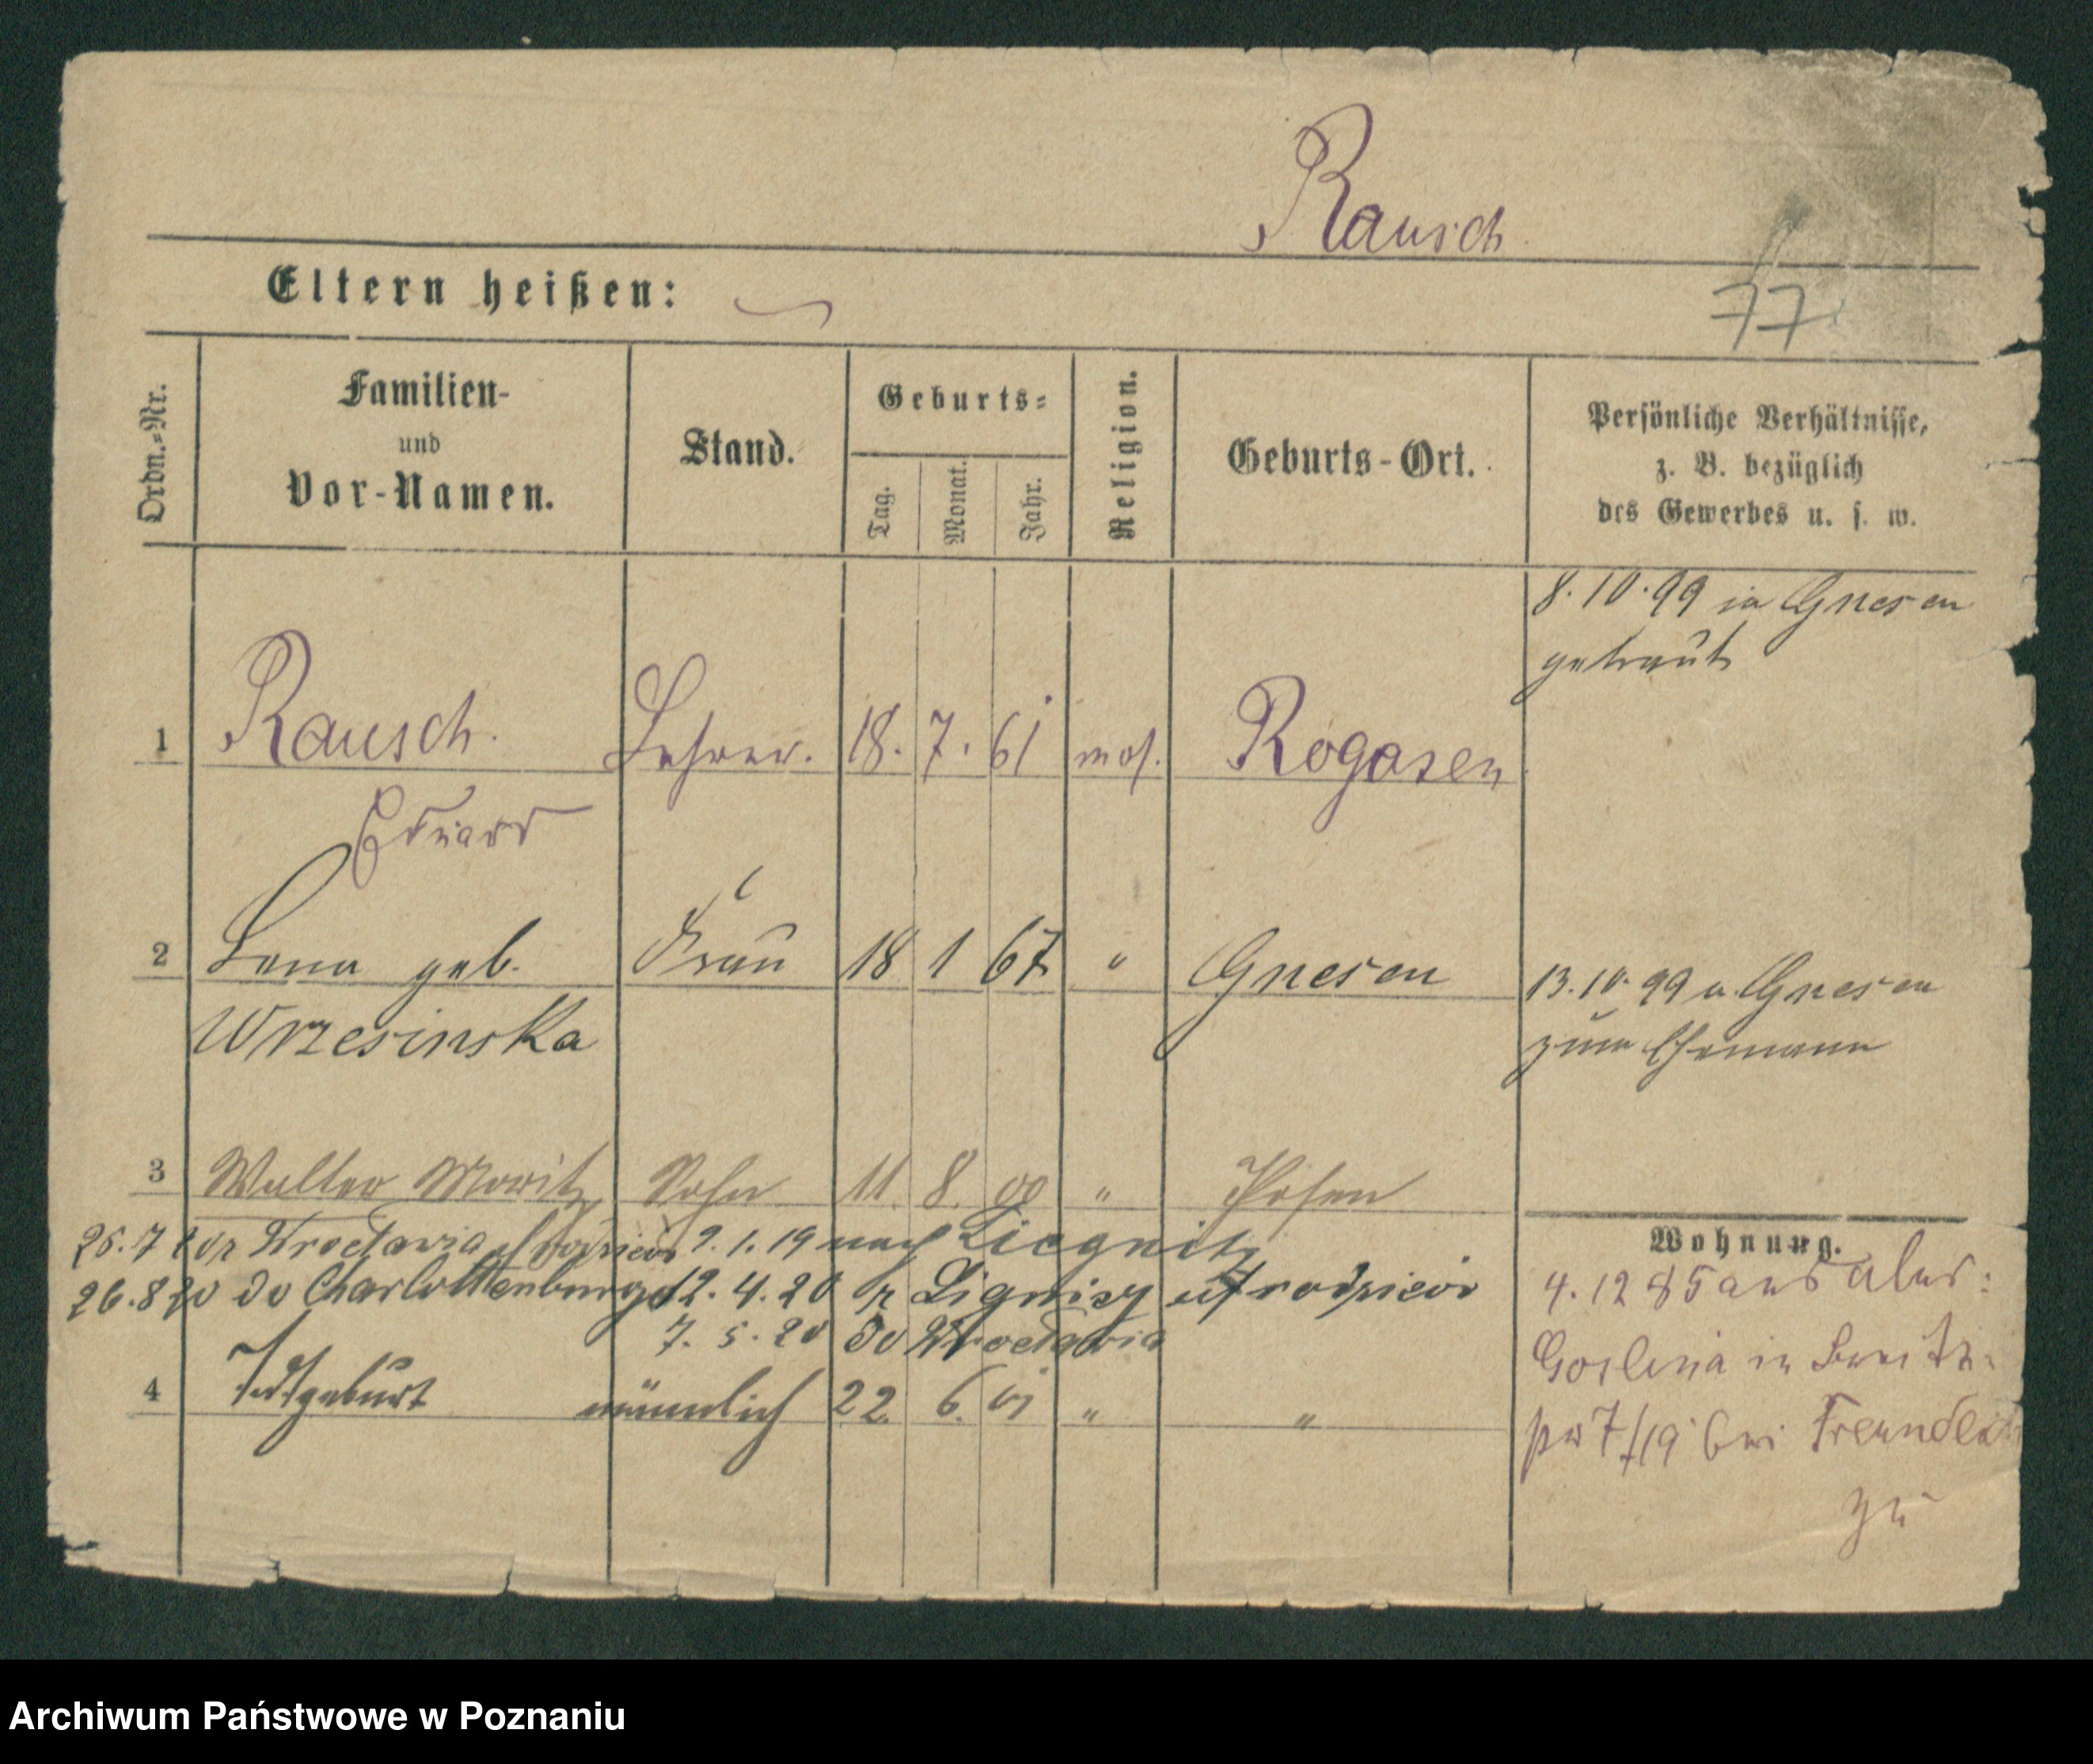 Rausch
77
Eltern heißen:
Ordn.-Nr.
Familien-
und
Vor-Namen.
Stand.
Geburts-
Tag. Monat. Jahr.
Religion.
Geburts-Ort.
Persönliche Verhältnisse,
z. B. bezüglich
des Gewerbes u. s. w.
8.10.99 in Gnesen
getraut
1 Rausch. Lehrer. 18. 7. 61 mos. Rogasen
Eduard
2 Lena geb. Frau 18 1 67 " Gnesen
Wrzesinska
13.10.99 v. Gnesen
zum Ehemann
3 Walter Moritz Sohn 11. 8. 00 " Posen
25.7 z Wrocławia 2.1.19 nach Liegnitz
26.8 20 do Charlottenburga 12.4.20 z Lignicy rodziców
7.5.20 do Wrocławia
4 Totgeburt männlich 22. 6. 01 " "
Wohnung.
4.12 85 aus
Goslina in
7/19 bei
zu
Archiwum Państwowe w Poznaniu